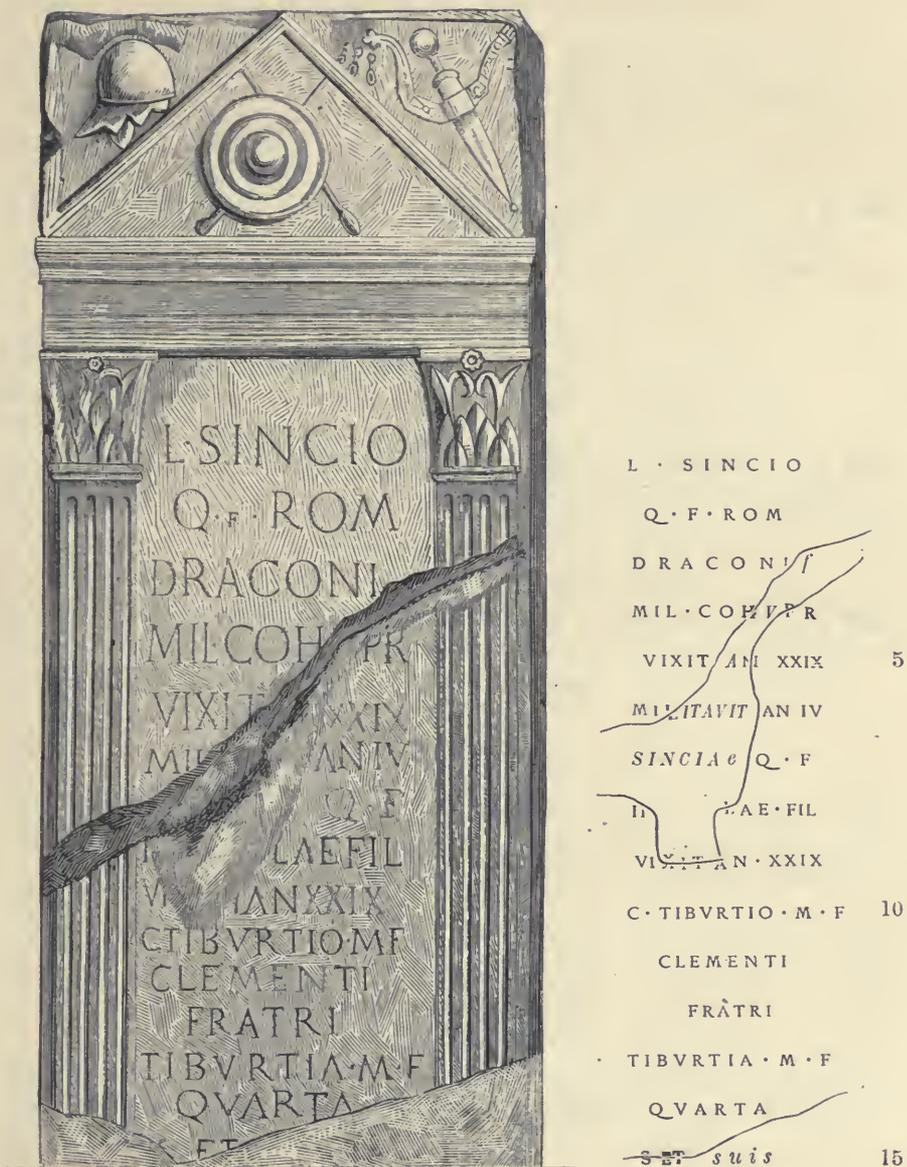 L·SINCIO
Q·F·ROM
DRACONI
MIL·COH PR
VIXIT XXIX
MIL AN IV
Q F
LAE FIL
VI AN XXIX
C TIBVRTIO·M F
CLEMENTI
FRATRI
TIBVRTIA·M·F
QVARTA
ET
L · SINCIO
Q · F · ROM
DRACONIf
MIL · COH V PR
VIXIT AN XXIX 5
MILITAVIT AN IV
SINCIAe Q · F
LAE · FIL
VIXIT AN · XXIX
C · TIBVRTIO · M · F 10
CLEMENTI
FRÀTRI
TIBVRTIA · M · F
QVARTA
S ET suis 15